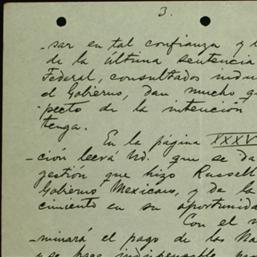 3.
-sar en tal confianza y
de la última sentencia
Federal, consultados
el Gobierno, dan mucho
-pecto de la intención
tenga.
En la página XXXV
-ción leerá Ud. que se da
gestión que hizo Russell
Gobierno Mexicano, y de la
cimiento en su oportunidad
Con el
-minará el pago de los